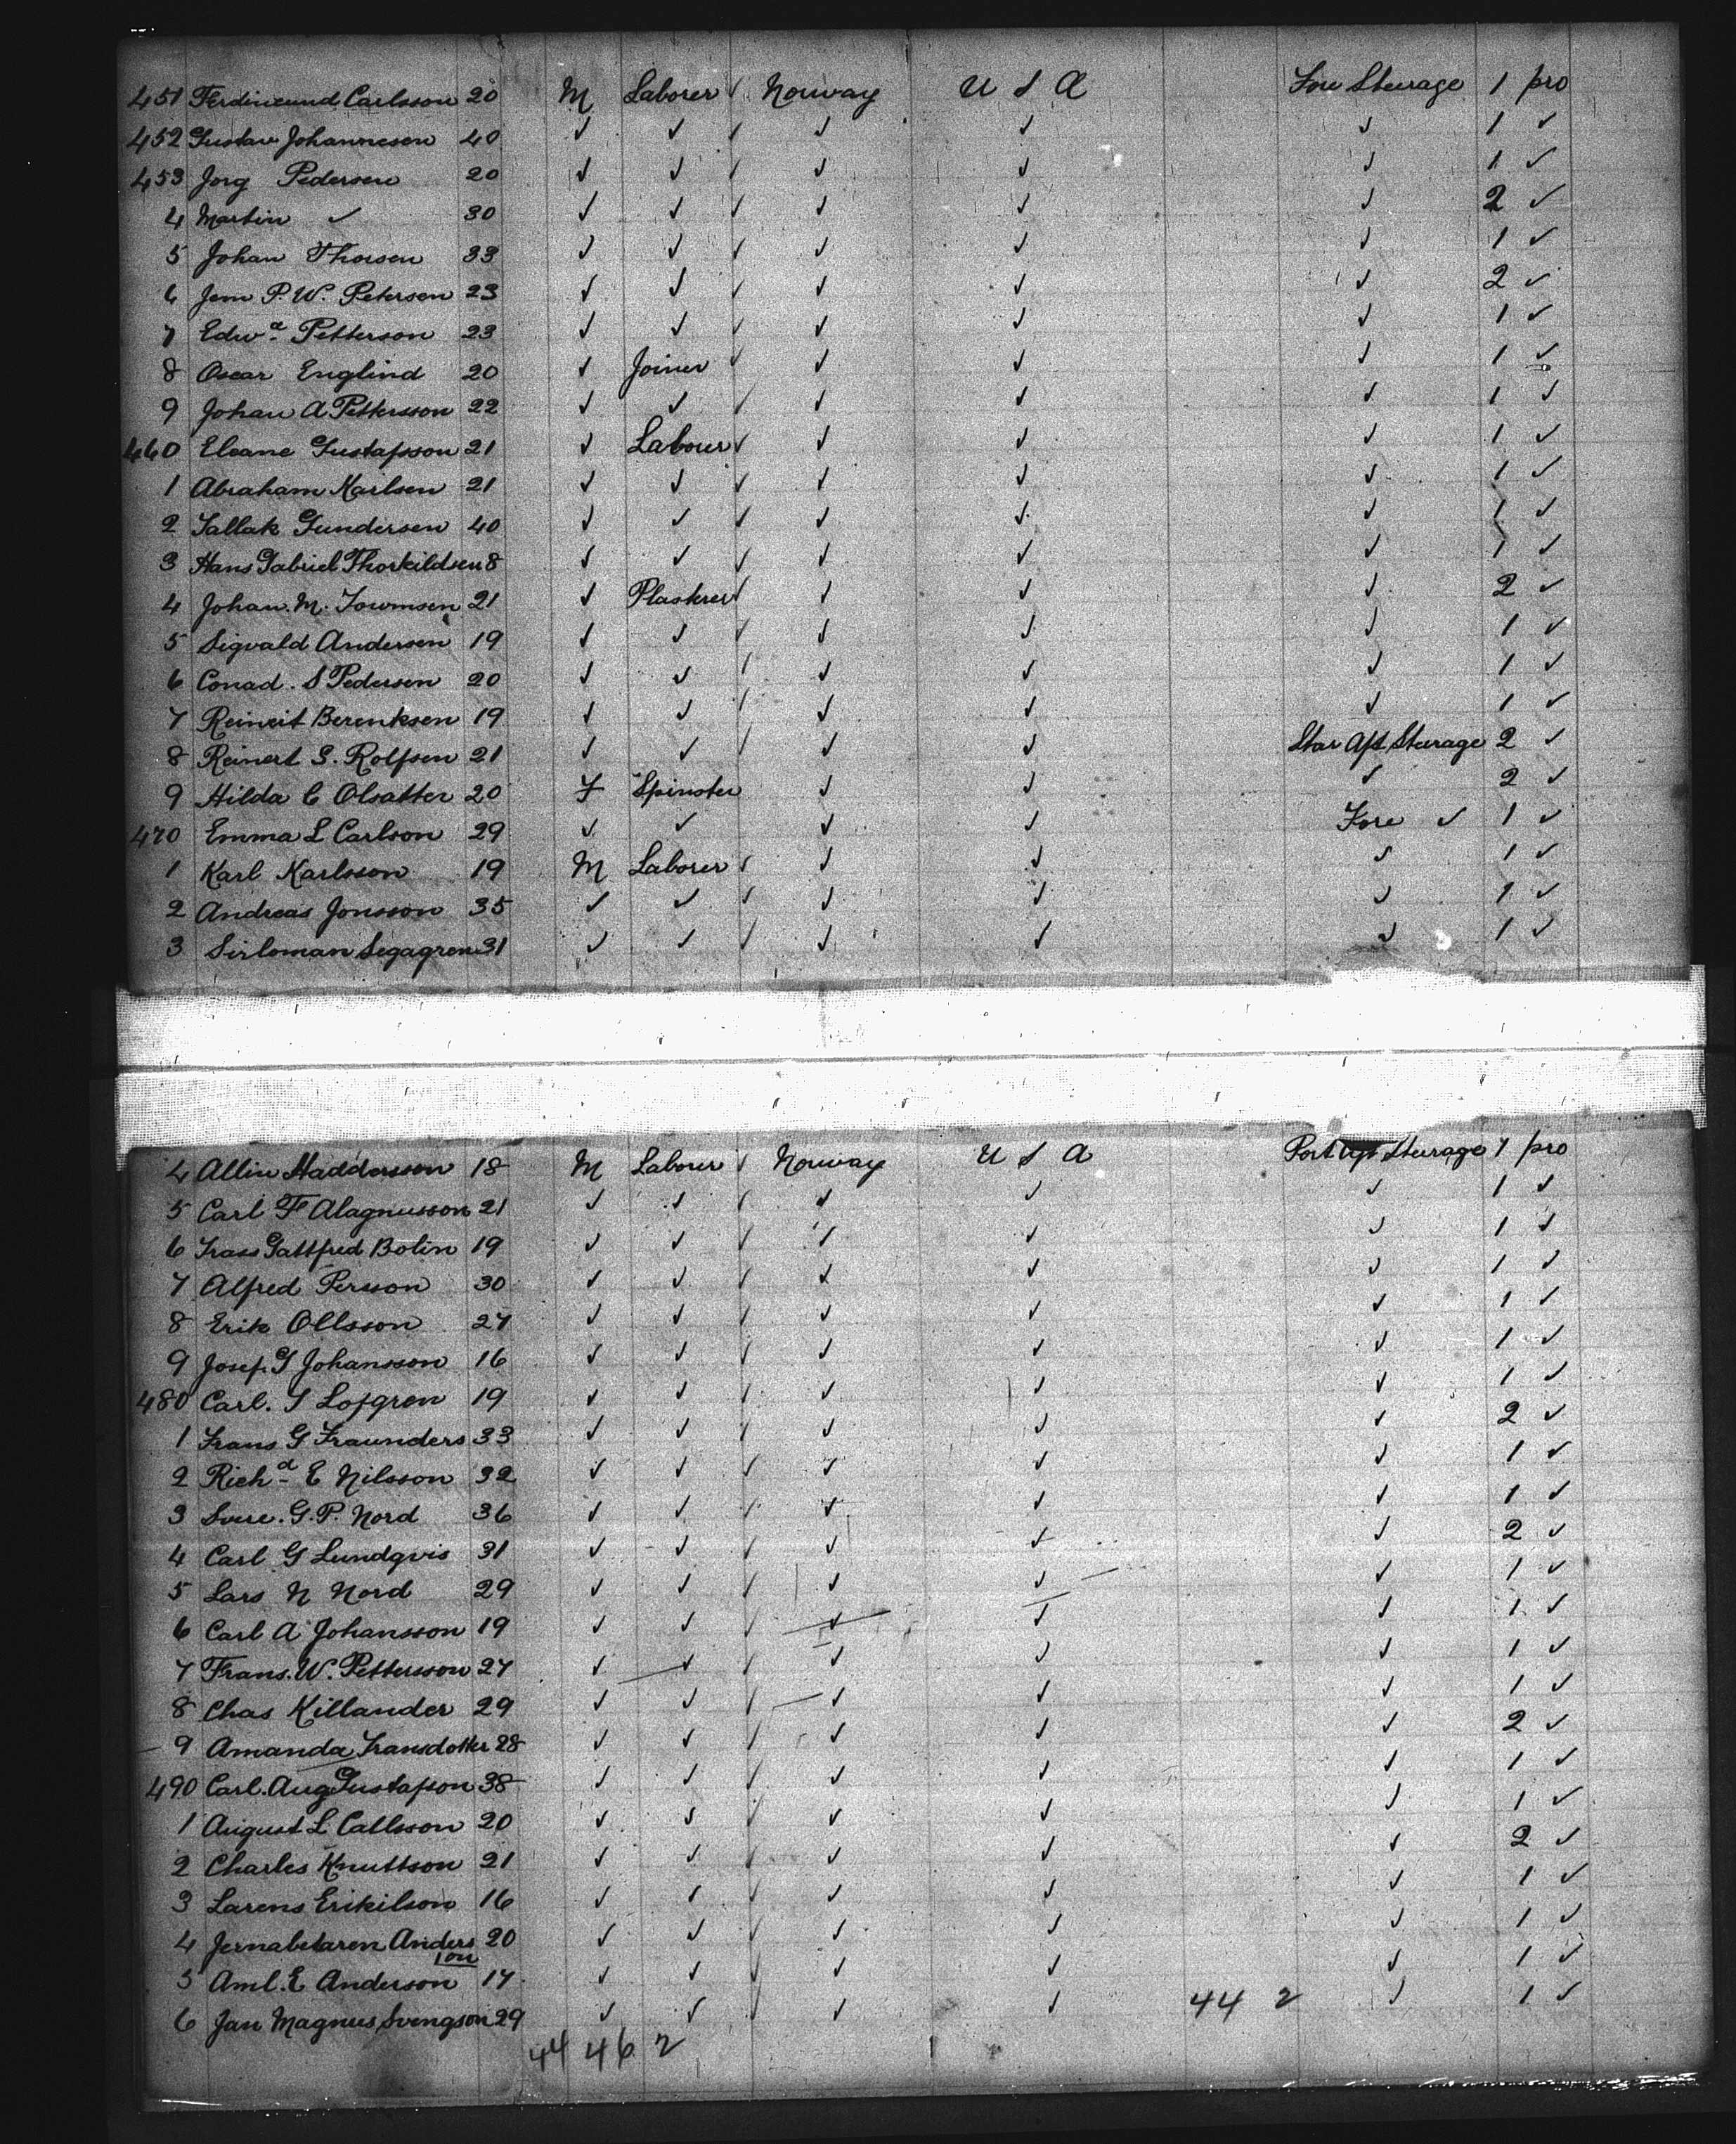 451 Ferdineund Carlsson 20 M Laborer ✓ Norway U S A Fore Steerage 1 pro
452 Gustav Johannesen 40 ✓ ✓ ✓ ✓ ✓ ✓ 1 ✓
453 Jorg Pedersen 20 ✓ ✓ ✓ ✓ ✓ ✓ 1 ✓
4 Martin ✓ 30 ✓ ✓ ✓ ✓ ✓ ✓ 2 ✓
5 Johan Thorsen 33 ✓ ✓ ✓ ✓ ✓ ✓ 1 ✓
6 Jem P. W. Petersen 23 ✓ ✓ ✓ ✓ ✓ ✓ 2 ✓
7 Edwd Petterson 23 ✓ ✓ ✓ ✓ ✓ ✓ 1 ✓
8 Oscar Englind 20 ✓ Joiner ✓ ✓ ✓ ✓ 1 ✓
9 Johan A Pettersson 22 ✓ ✓ ✓ ✓ ✓ ✓ 1 ✓
460 Eleane Gustafsson 21 ✓ Labourer ✓ ✓ ✓ ✓ 1 ✓
1 Abraham Karlsen 21 ✓ ✓ ✓ ✓ ✓ ✓ 1 ✓
2 Tallak Gundersen 40 ✓ ✓ ✓ ✓ ✓ ✓ 1 ✓
3 Hans Gabriel Thorkildsen 8 ✓ ✓ ✓ ✓ ✓ ✓ 1 ✓
4 Johan. M. Townsen 21 ✓ Plasterer ✓ ✓ ✓ ✓ 2 ✓
5 Sigvald Andersen 19 ✓ ✓ ✓ ✓ ✓ ✓ 1 ✓
6 Conad. S Pedersen 20 ✓ ✓ ✓ ✓ ✓ ✓ 1 ✓
7 Reineit Berentsen 19 ✓ ✓ ✓ ✓ ✓ ✓ 1 ✓
8 Reinert S. Rolfsen 21 ✓ ✓ ✓ ✓ ✓ Star Aft Steerage 2 ✓
9 Hilda C Olsatter 20 F Spinster ✓ ✓ ✓ 2 ✓
470 Emma L Carlson 29 ✓ ✓ ✓ ✓ Fore ✓ 1 ✓
1 Karl Karlsson 19 M Laborer ✓ ✓ ✓ ✓ 1 ✓
2 Andreas Jonsson 35 ✓ ✓ ✓ ✓ ✓ ✓ 1 ✓
3 Sirloman Segagren 31 ✓ ✓ ✓ ✓ ✓ ✓ 1 ✓
4 Allin Haddersson 18 M Labourer ✓ Norway U S A Port Aft Steerage 1 pro
5 Carl F Alagnusson 21 ✓ ✓ ✓ ✓ ✓ ✓ 1 ✓
6 Frass Gattfred Bolin 19 ✓ ✓ ✓ ✓ ✓ ✓ 1 ✓
7 Alfred Persson 30 ✓ ✓ ✓ ✓ ✓ ✓ 1 ✓
8 Erik Ollsson 27 ✓ ✓ ✓ ✓ ✓ ✓ 1 ✓
9 Josep. G Johansson 16 ✓ ✓ ✓ ✓ ✓ ✓ 1 ✓
480 Carl. G Lofgren 19 ✓ ✓ ✓ ✓ ✓ ✓ 1 ✓
1 Frans G Fraunders 33 ✓ ✓ ✓ ✓ ✓ ✓ 2 ✓
2 Richd E Nilsson 32 ✓ ✓ ✓ ✓ ✓ ✓ 1 ✓
3 Svere. G. P. Nord 36 ✓ ✓ ✓ ✓ ✓ 1 ✓
4 Carl G Lundqvis 31 ✓ ✓ ✓ ✓ ✓ ✓ 2 ✓
5 Lars N Nord 29 ✓ ✓ ✓ ✓ ✓ ✓ 1 ✓
6 Carl A Johansson 19 ✓ ✓ ✓ ✓ ✓ ✓ 1 ✓
7 Frans. W. Pettersson 27 ✓ ✓ ✓ ✓ ✓ ✓ 1 ✓
8 Chas Killander 29 ✓ ✓ ✓ ✓ ✓ ✓ 1 ✓
9 Amanda Fransdotter 28 ✓ ✓ ✓ ✓ ✓ ✓ 2 ✓
490 Carl. Aug Gustafson 38 ✓ ✓ ✓ ✓ ✓ ✓ 1 ✓
1 August L Catlsson 20 ✓ ✓ ✓ ✓ ✓ ✓ 1 ✓
2 Charles Knuttson 21 ✓ ✓ ✓ ✓ ✓ ✓ 2 ✓
3 Larens Erikilson 16 ✓ ✓ ✓ ✓ ✓ ✓ 1 ✓
4 Jernabetaren Anders 20 ✓ ✓ ✓ ✓ ✓ ✓ 1 ✓
son
5 Aml. E Anderson 17 ✓ ✓ ✓ ✓ ✓ ✓ 1 ✓
6 Jan Magnus Svengson 29 ✓ ✓ ✓ ✓ ✓ 44 2 ✓ 1 ✓
44 46 2